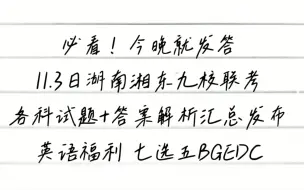 必看！今晚就发答
11.3日湖南湘东九校联考
各科试题+答案解析汇总发布
英语福利 七选五BGEDC